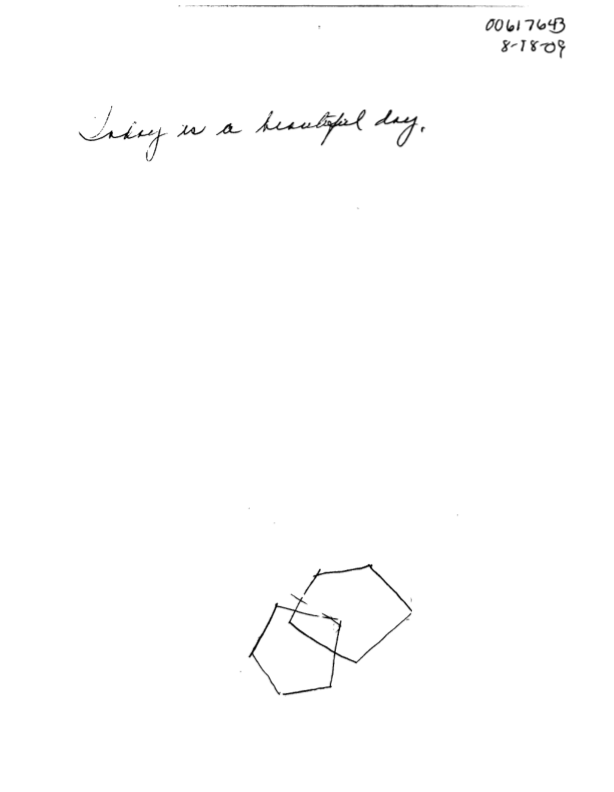 00617643
8-18-09
Today is a beautiful day.